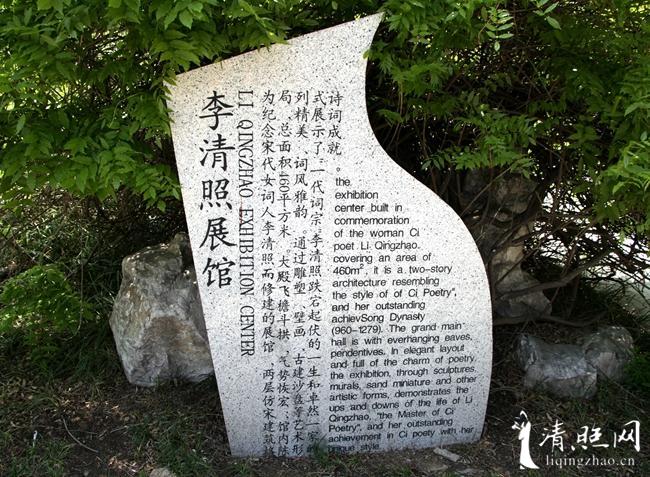 李清照展馆
LI QINGZHAO EXHIBITION CENTER
为纪念宋代女词人李清照而修建的展馆、两层仿宋建筑格
局、总面积460平方米、大殿飞檐斗拱、气势恢宏、馆内陈
列精美、词风雅韵。通过雕塑、壁画、古建沙盘等艺术形
式展示了"一代词宗"李清照跌宕起伏的一生和卓然一家的
诗词成就。
the
exhibition
center built in
commemoration
of the woman Ci
poet Li Qingzhao.
covering an area of
460m², it is a two-story
architecture resembling
the style of of Ci Poetry",
and her outstanding
achievSong Dynasty
(960-1279). The grand main
hall is with everhanging eaves,
pendentives. In elegant layout
and full of the charm of poetry,
the exhibition, through sculptures,
murals, sand miniature and other
artistic forms, demonstrates the
ups and downs of the life of Li
Qingzhao, "the Master of Ci
Poetry", and her outstanding
achievement in Ci poety with her
unique style.
清旺网
liqingzhao.cn